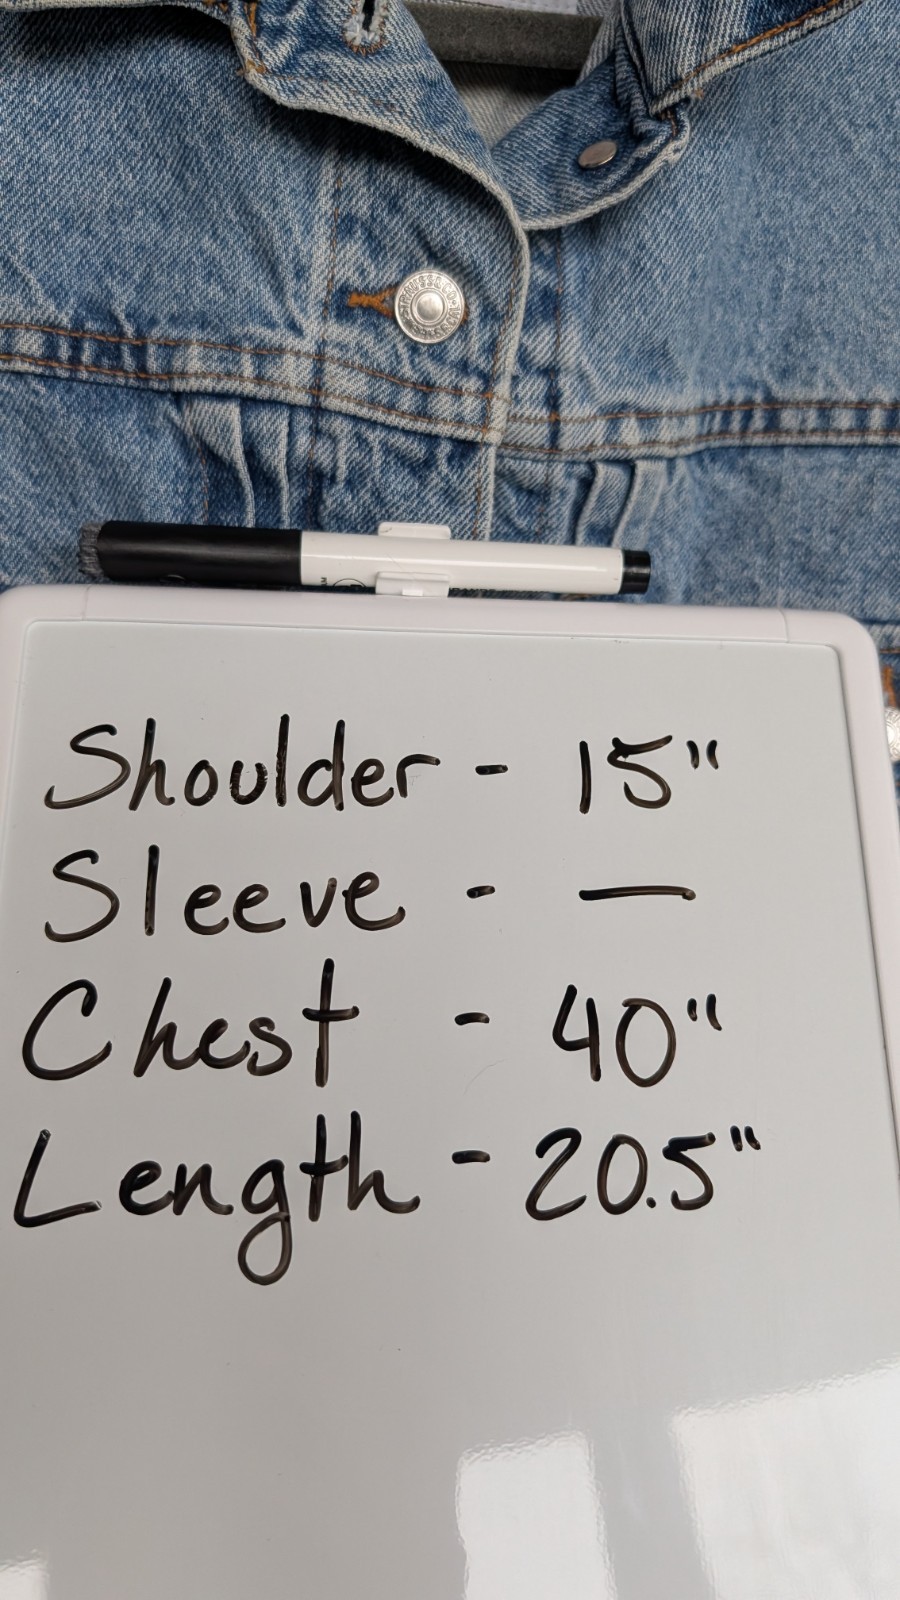 Shoulder - 15"
Sleeve - —
Chest - 40"
Length - 20.5"